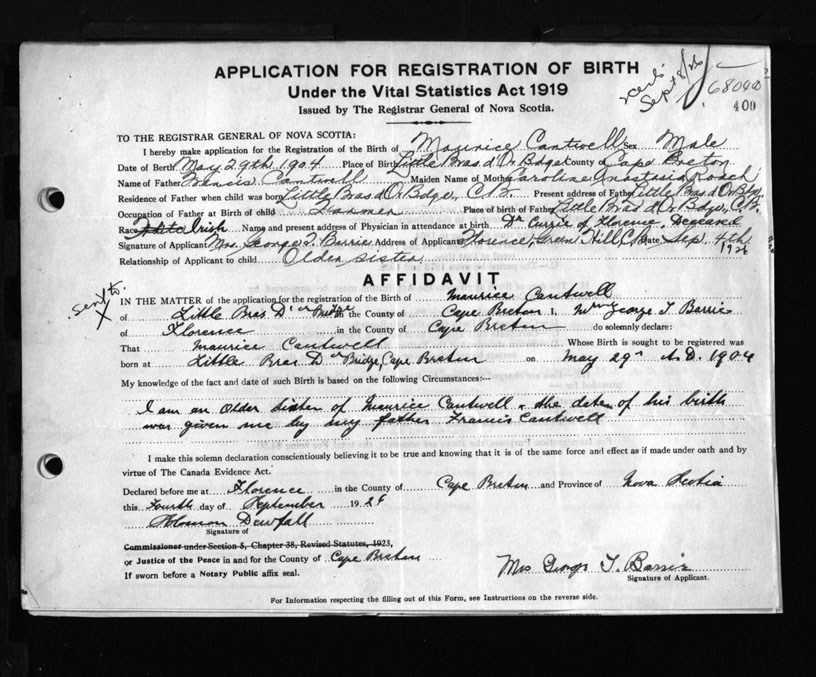 APPLICATION FOR REGISTRATION OF BIRTH
Under the Vital Statistics Act 1919
Issued by The Registrar General of Nova Scotia.
Sept 8/26
68040
400
TO THE REGISTRAR GENERAL OF NOVA SCOTIA:
I hereby make application for the Registration of the Birth of Maurice Cantwell Sex Male
Date of Birth May 29th 1904 Place of Birth Little Bras d'Or Bdge County of Cape Breton
Name of Father Francis Cantwell Maiden Name of Mother Caroline Anastasia Roach
Residence of Father when child was born Little Bras d Or Bdge, C.B. Present address of Father Little Bras d Or Bdge
Occupation of Father at Birth of child Farmer Place of birth of Father Little Bras d Or Bdge, C.B.
Race White Irish Name and present address of Physician in attendance at birth Dr Currie of Florence, Deceased
Signature of Applicant Mrs. George T. Barrie Address of Applicant Florence, Green Hill, C.B. Date Sep. 4th 1926
Relationship of Applicant to child Older sister
AFFIDAVIT
Send to X
IN THE MATTER of the application for the registration of the Birth of Maurice Cantwell
of Little Bras D'or Bridge in the County of Cape Breton I, Mrs George T Barrie
of Florence in the County of Cape Breton do solemnly declare:
That Maurice Cantwell Whose Birth is sought to be registered was
born at Little Bras D'or Bridge, Cape Breton on May 29th A.D. 1904
My knowledge of the fact and date of such Birth is based on the following Circumstances:—
I am an older sister of Maurice Cantwell & the date of his birth
was given me by my father Francis Cantwell
I make this solemn declaration conscientiously believing it to be true and knowing that it is of the same force and effect as if made under oath and by
virtue of The Canada Evidence Act.
Declared before me at Florence in the County of Cape Breton and Province of Nova Scotia
this Fourth day of September 1926
Dowfall
Signature of
Commissioner under Section 5, Chapter 38, Revised Statutes, 1923,
or Justice of the Peace in and for the County of Cape Breton
If sworn before a Notary Public affix seal.
Mrs George T. Barrie
Signature of Applicant.
For Information respecting the filling out of this Form, see Instructions on the reverse side.